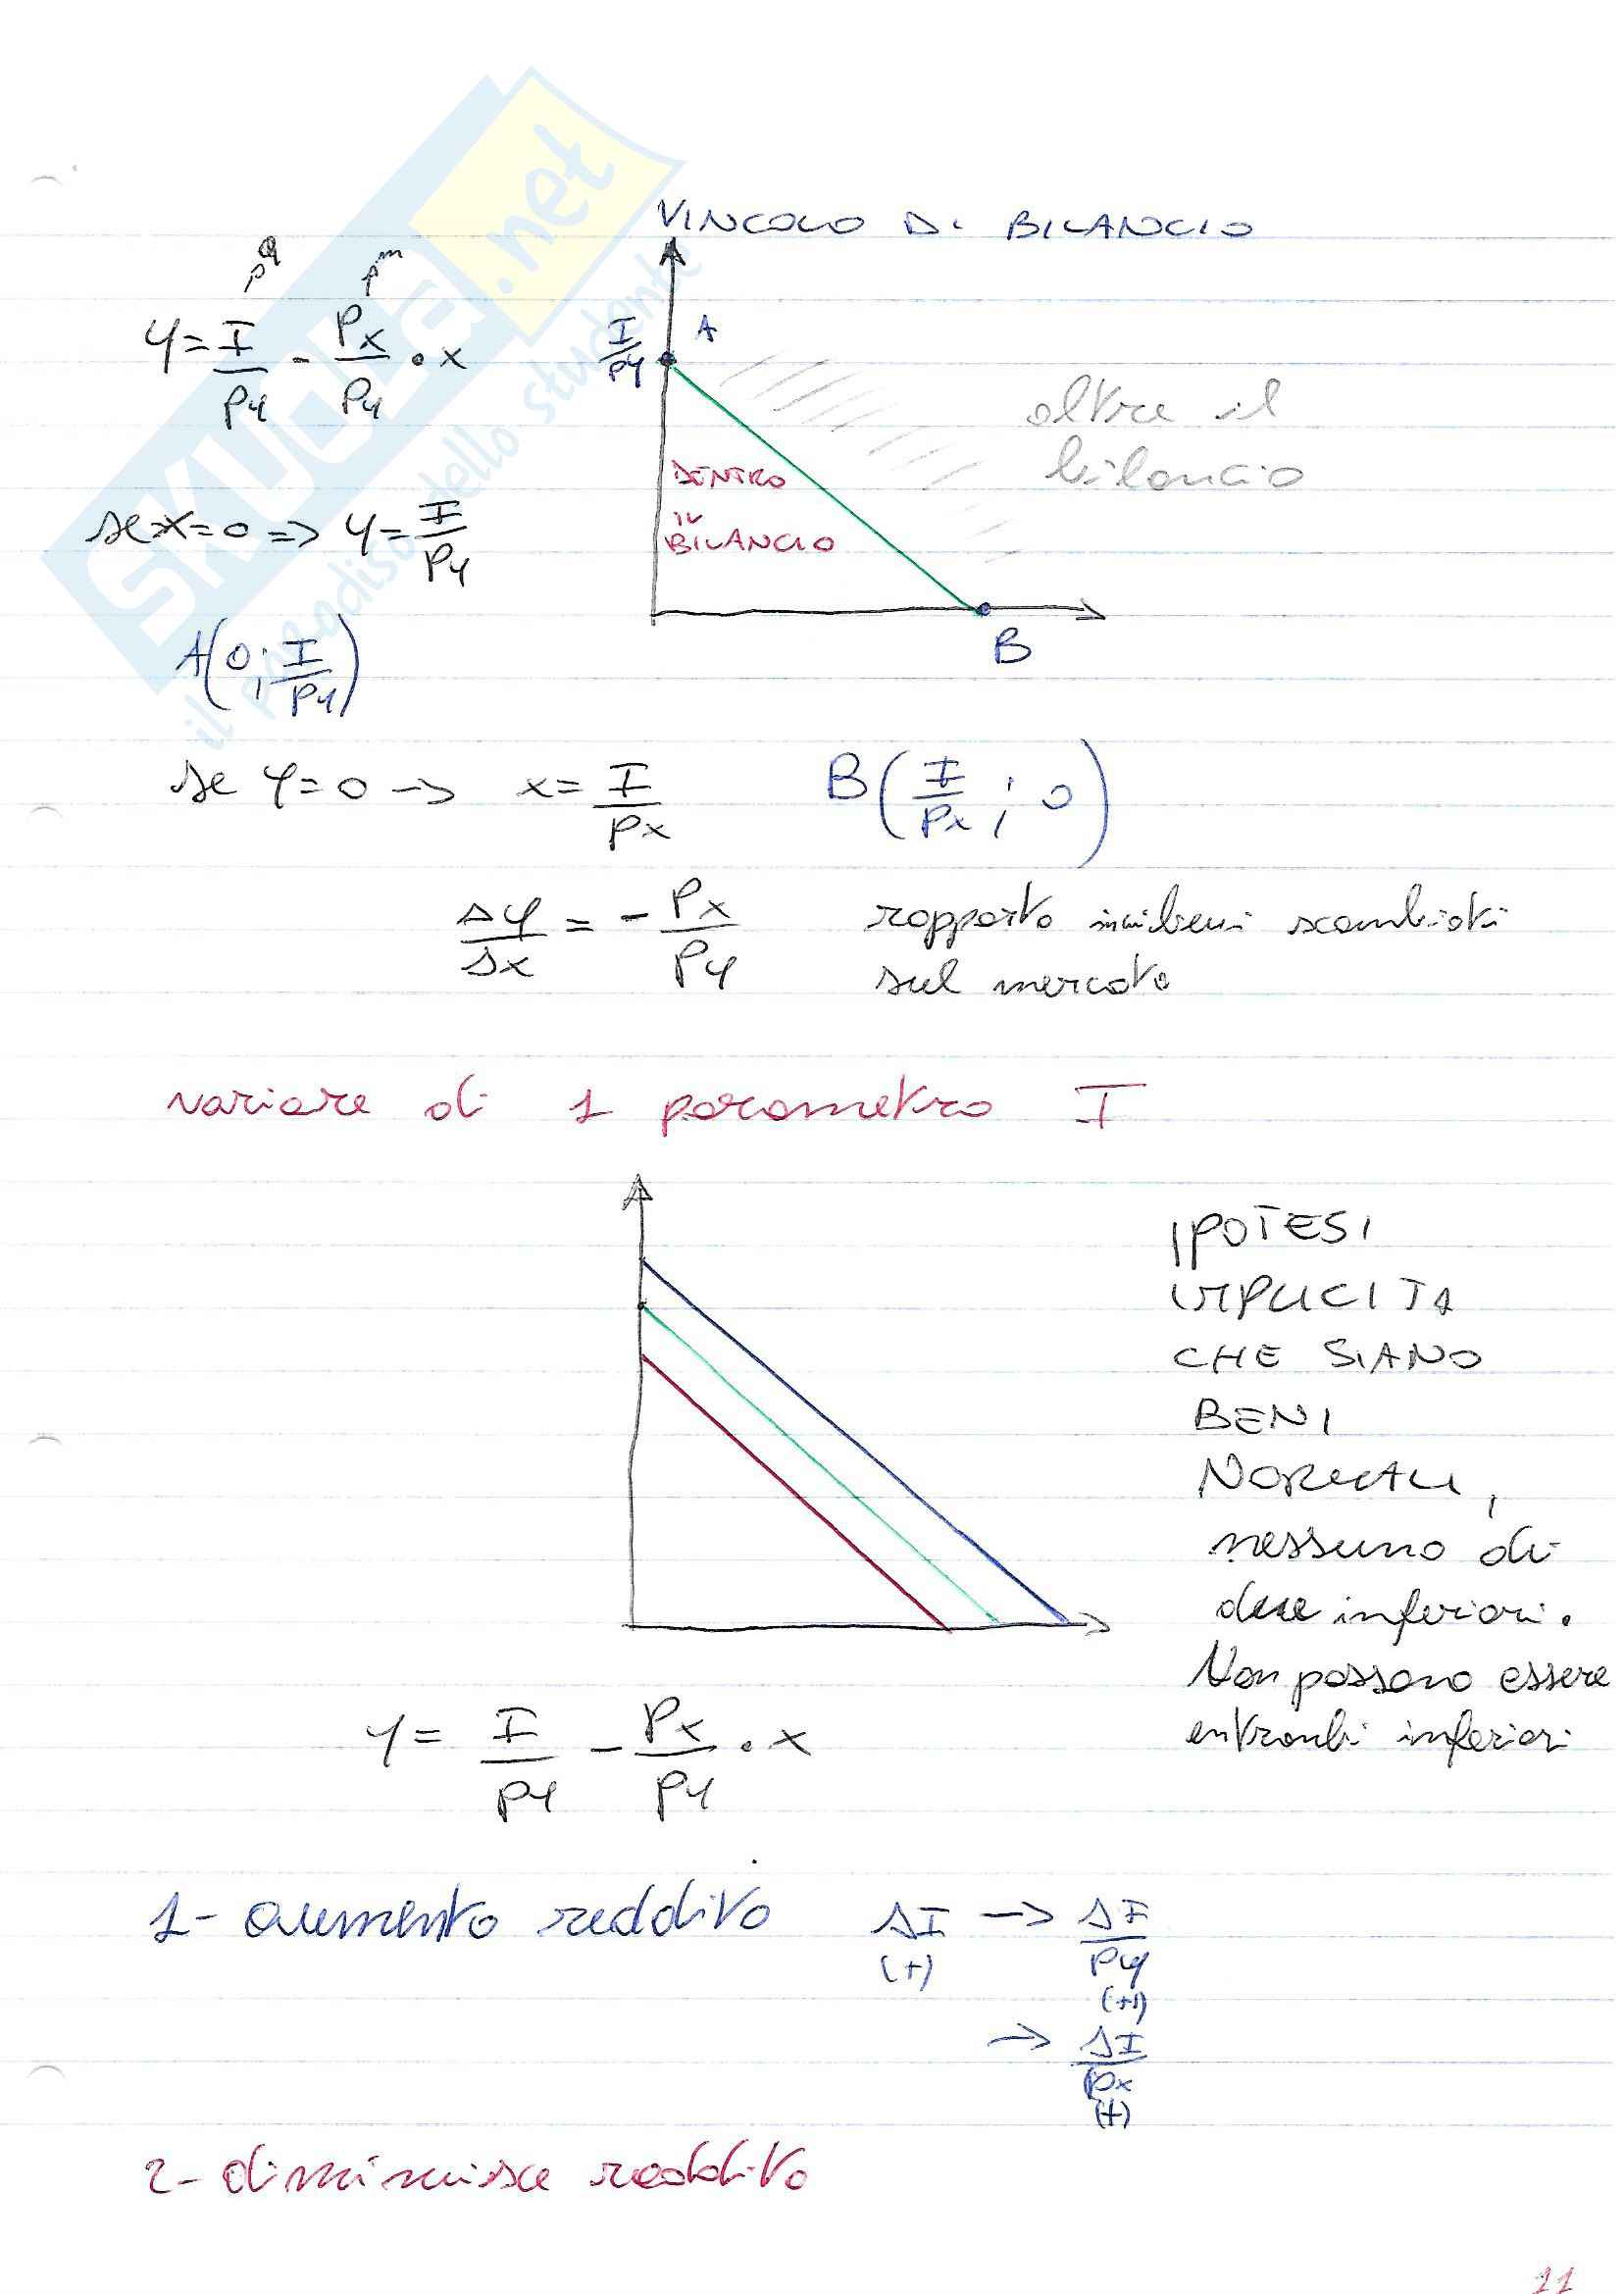 SKUOLA.net
il paradiso dello studente
VINCOLO DI BILANCIO
pq pm
y = I/Py - Px/Py · x
I/Py A
oltre il
bilancio
DENTRO
IL
BILANCIO
se x=0 => y = I/Py
B
A(0; I/Py)
se y=0 -> x = I/Px B(I/Px ; 0)
Δy/Δx = - Px/Py rapporto beni scambiati
sul mercato
variare di 1 parametro I
IPOTESI
IMPLICITA
CHE SIANO
BENI
NORMALI,
nessuno di
due inferiori.
Non possono essere
entrambi inferiori
y = I/Py - Px/Py · x
1- aumento reddito ΔI -> ΔI/Py
(+) (+)
-> ΔI/Px
(+)
2- diminuisce reddito
11